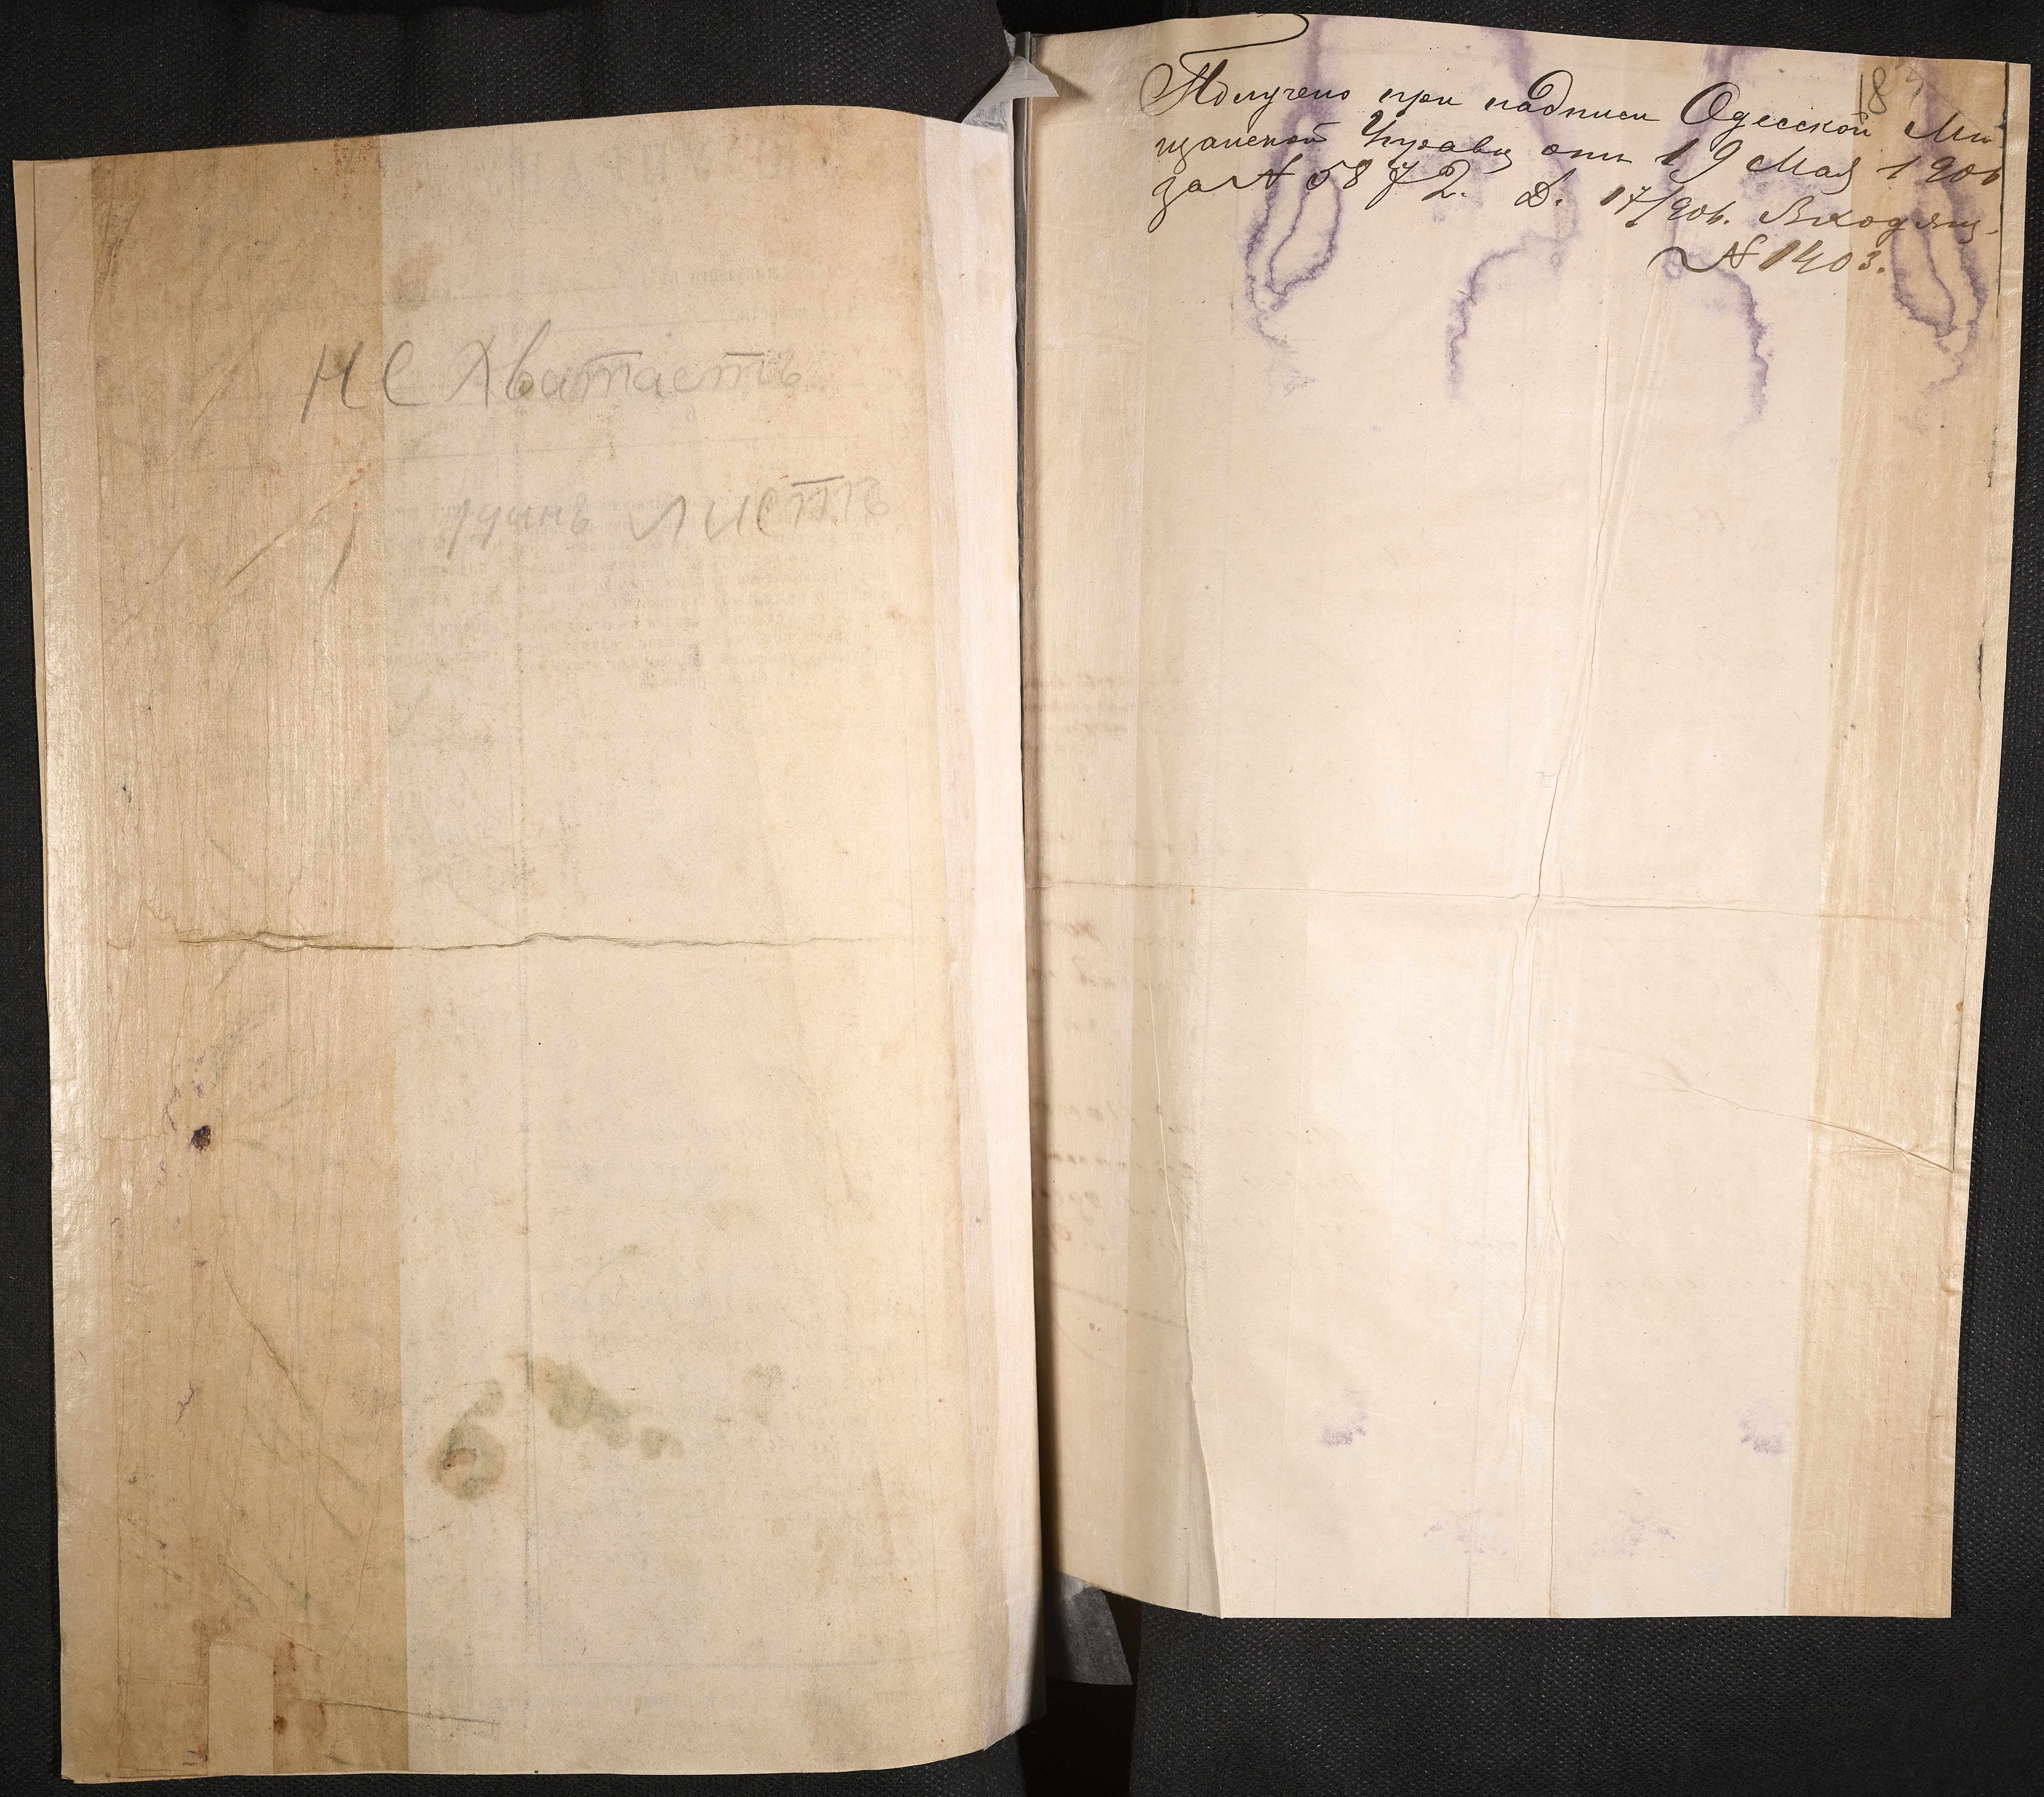 не хватаетъ
1 одинъ листъ
18
Получено при надписи Одесской Мѣ-
щанской Управы отъ 19 Мая 1906
за № 5872. Д. 17/906. Входящ.
№ 1403.